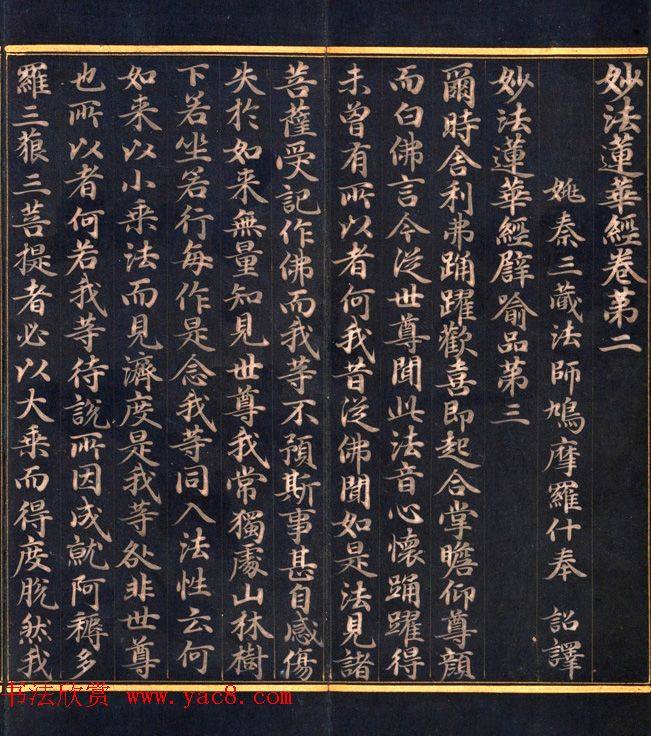 妙法蓮華經卷第二
姚秦三藏法師鳩摩羅什奉 詔譯
妙法蓮華經譬喻品第三
爾時舍利弗踊躍歡喜即起合掌瞻仰尊顏
而白佛言今從世尊聞此法音心懷踊躍得
未曾有所以者何我昔從佛聞如是法見諸
菩薩受記作佛而我等不預斯事甚自感傷
失於如来無量知見世尊我常獨處山林樹
下若坐若行每作是念我等同入法性云何
如来以小乘法而見濟度是我等咎非世尊
也所以者何若我等待說所因成就阿耨多
羅三藐三菩提者必以大乘而得度脫然我
书法欣赏 www.yac8.com